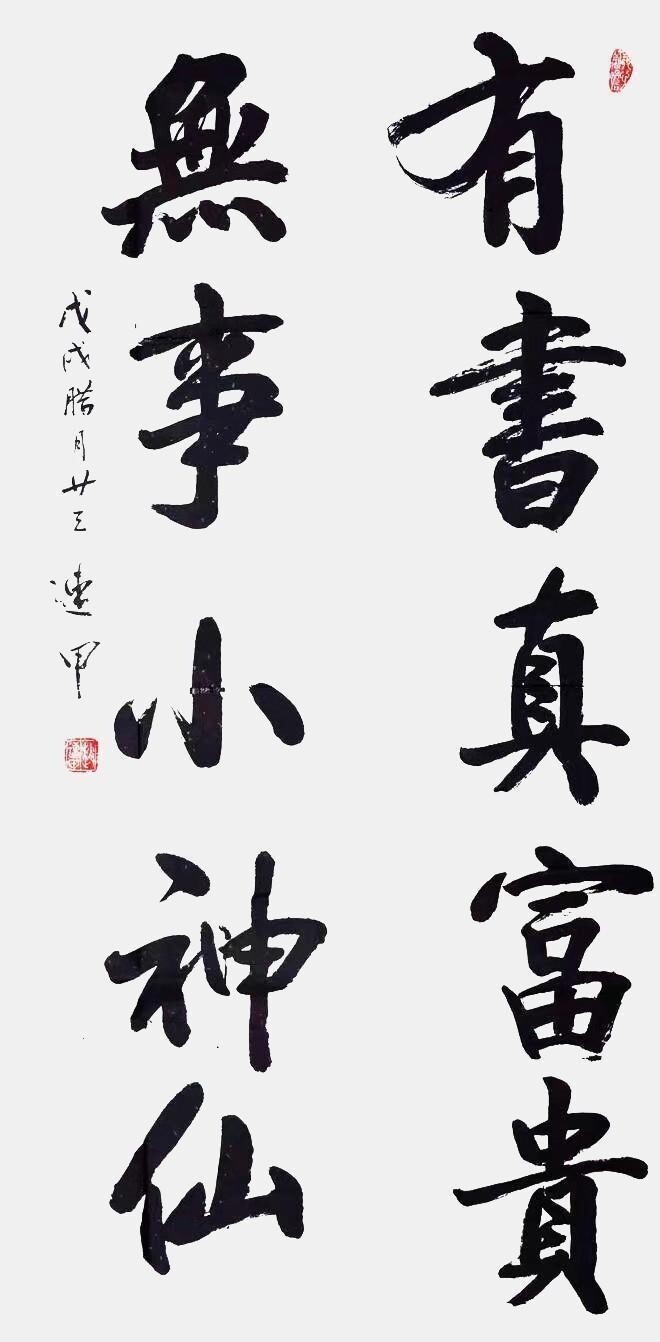 有書真富貴
無事小神仙
戊戌腊月廿三 連甲